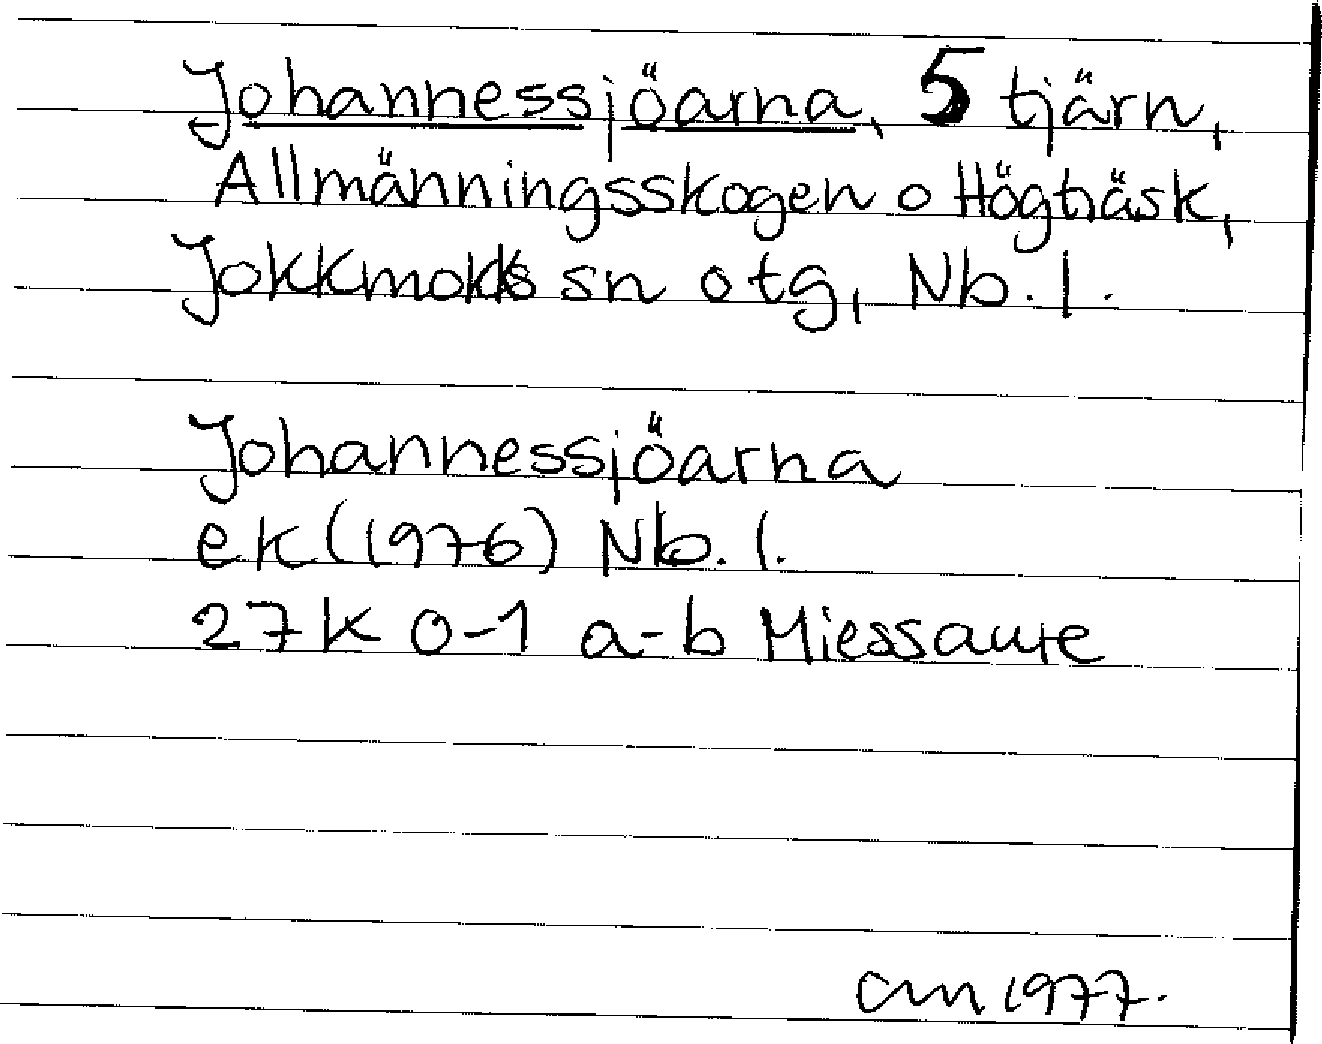 Johannessjöarna, 5 tjärn,
Allmänningsskogen o Högträsk,
Jokkmokks sn otg, Nb. l.
Johannessjöarna
ek (1976) Nb. l.
27K 0-1 a-b Miessaure
cm 1977.